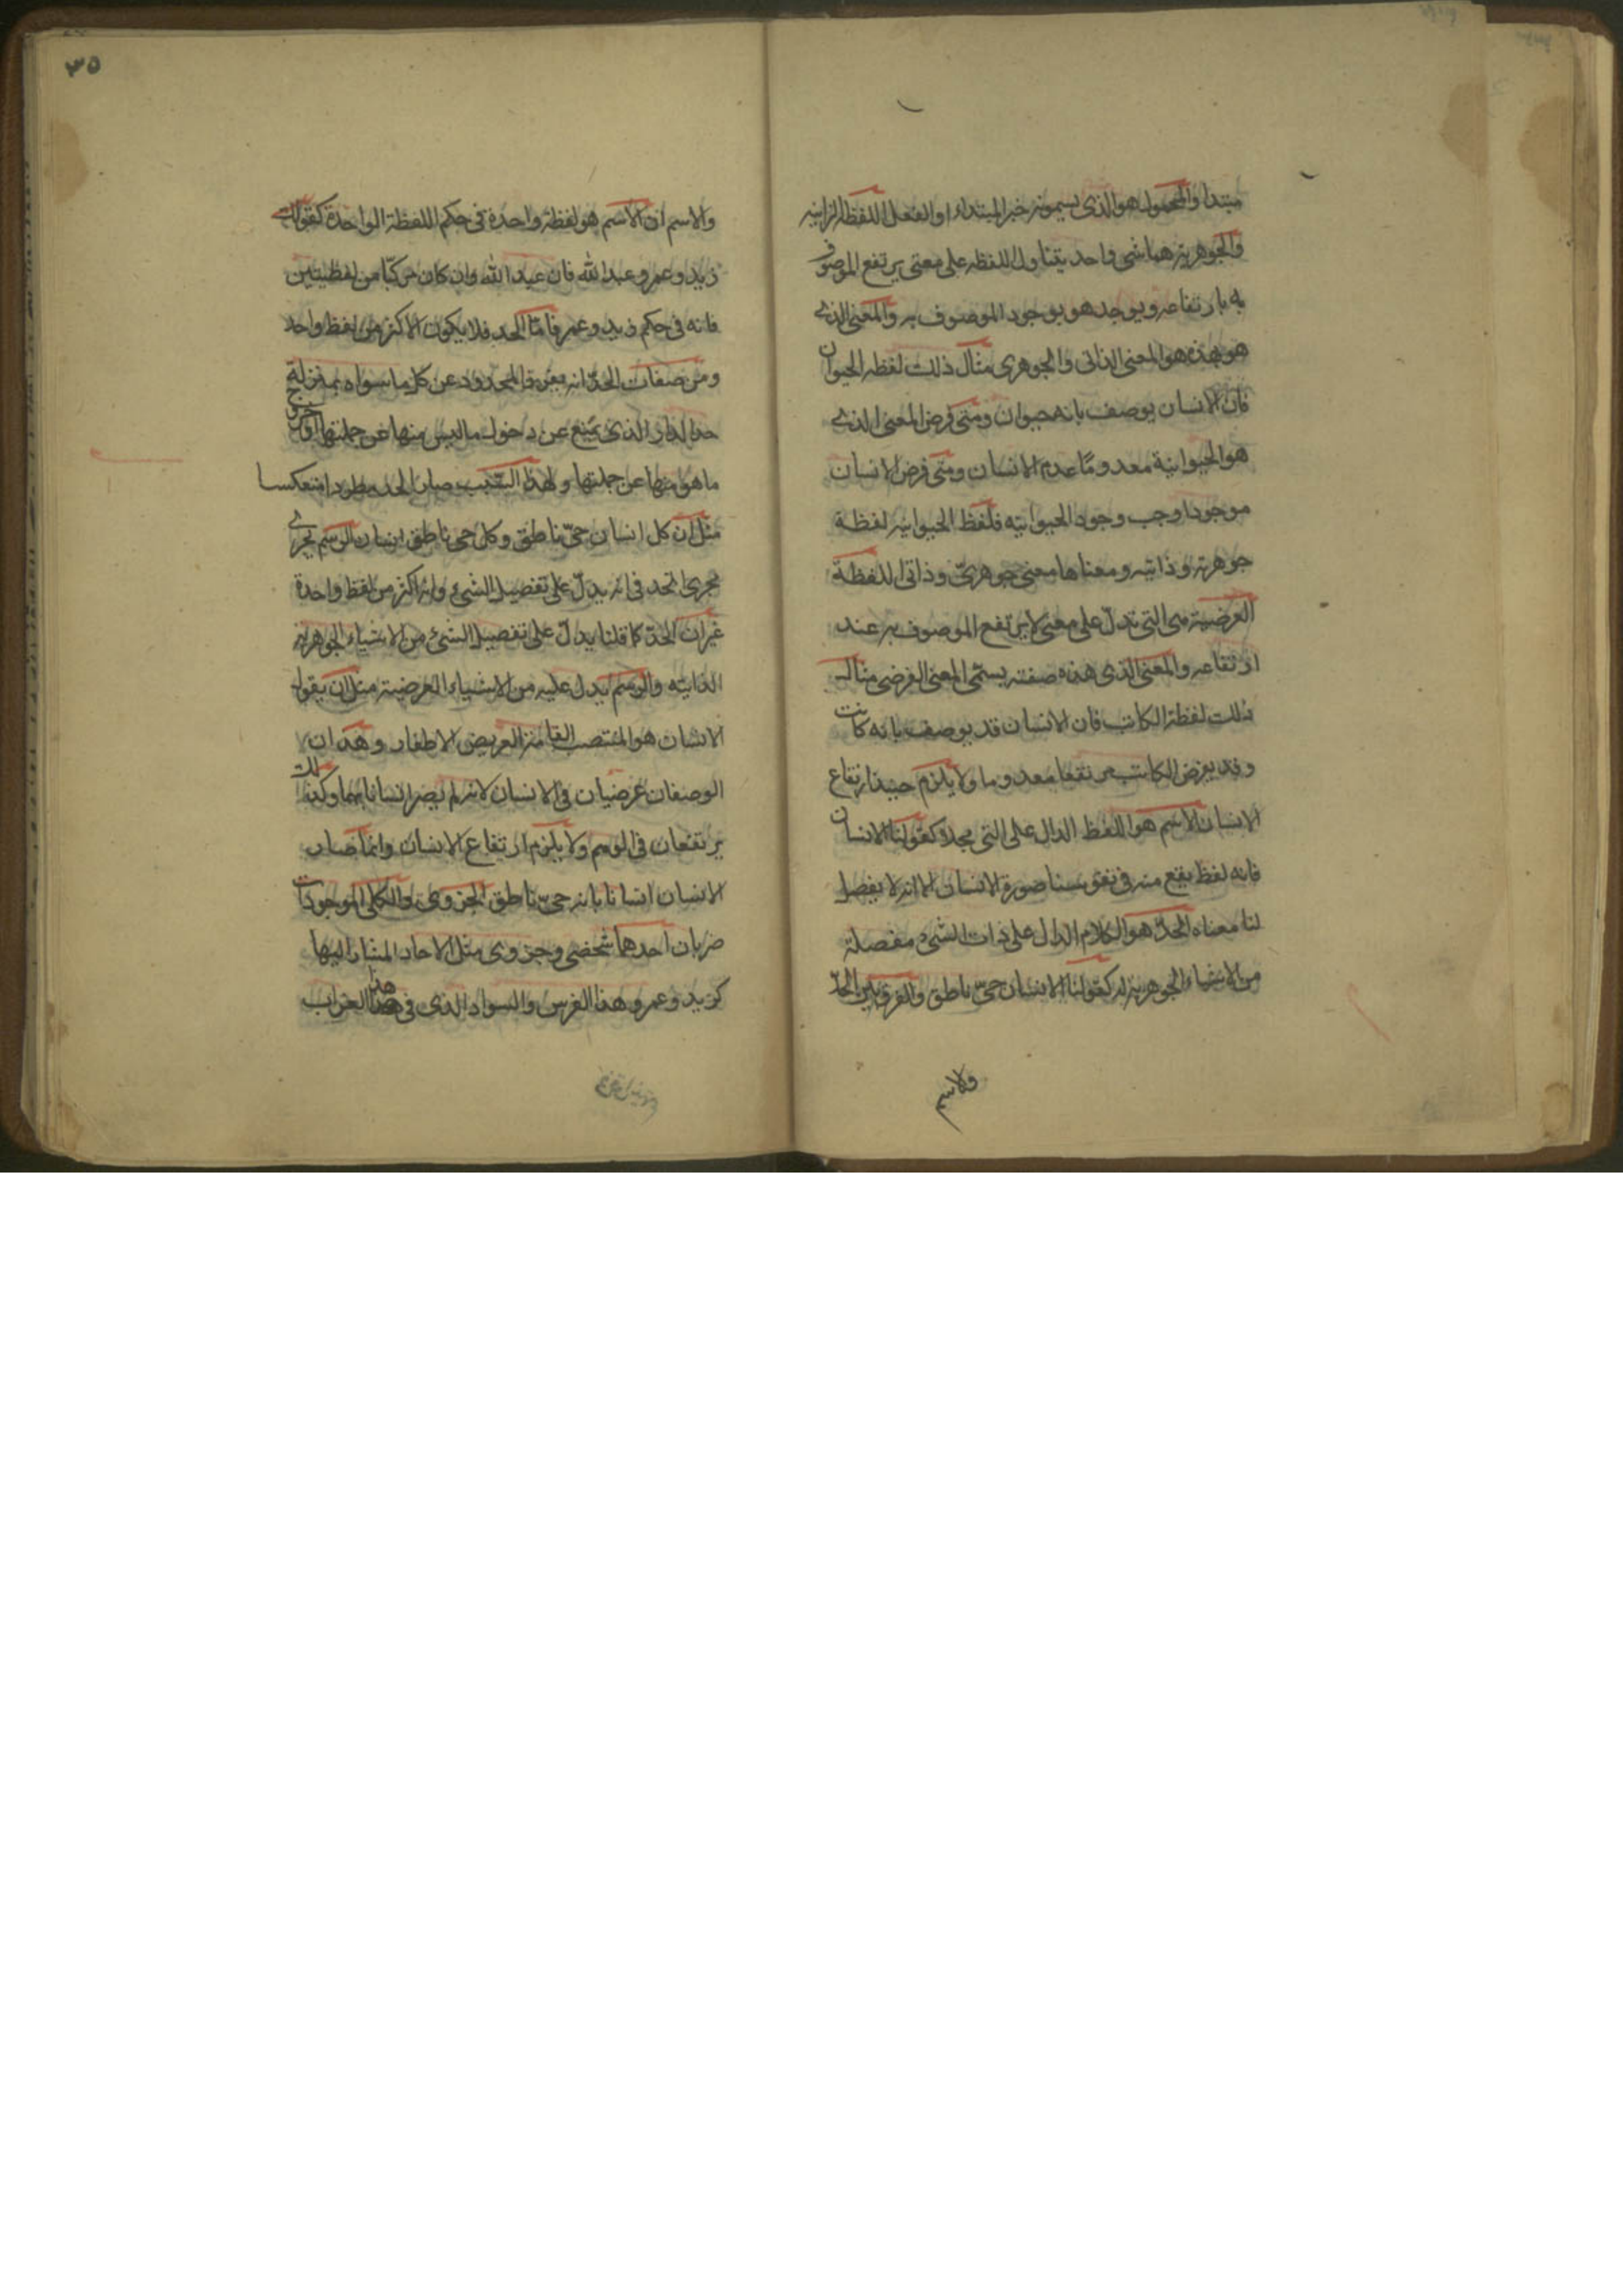 مبتداء والمحمول هو الذى يسمونه خبر المبتداء او الفعل اللفظة الذاتيه
والجوهرية هما شى واحد يتناول اللفظه على معنى يرتفع الموصوف
به بارتفاعه ويوجد هو بوجود الموصوف به والمعنى الذى
هو بهذه هو المعنى الذاتى والجوهرى مثال ذلك لفظه الحيوان
فان الانسان يوصف بانه حيوان ومتى فرض المعنى الذى
هو الحيوانية معدوما عدم الانسان ومتى فرض الانسان
موجودا وجب وجود الحيوانيه فلفظ الحيوانيه لفظة
جوهريه وذاتيه ومعناها معنى جوهرىّ وذاتى اللفظة
العرضية هى التى تدلّ على معنى لا يرتفع الموصوف به عند
ارتفاعه والمعنى الذى هذه صفته يسمّى المعنى العرضى مثال
ذلك لفظة الكاتب فان الانسان قد يوصف بانه كاتب
وقد يفرض الكاتب مرتفعا معدوما ولا يلزم حينئذ ارتفاع
الانسان الاسم هو اللفظ الدال على الشى مجملا كقولنا الانسان
فانه لفظ يقع منه فى نفوسنا صورة الانسان الا انه لا يفصل
لنا معناه الحدّ هو الكلام الدال على ذات الشىء مفصلة
من الاشياء الجوهرية له كقولنا الانسان حىّ ناطق والفرق بين الحدّ
والاسم
٣٥
والاسم ان الاسم هو لفظة واحدة فى حكم اللفظة الواحدة كقولك
زيد وعمرو وعبد الله فان عبد الله وان كان مركّبا من لفظتين
فانه فى حكم زيد وعمر فامّا الحد فلا يكون الا اكثر من لفظ واحد
ومن صفات الحدّ انه يفرق المحدود عن كل ما سواه بمنزلة
حد الدار الذى يمنع عن دخول ما ليس منها عن جملتها او خروج
ما هو منها عن جملتها ولهذا السّبب صار الحد مطردا منعكسا
مثل ان كل انسان حىّ ناطق وكل حى ناطق انسان الرسم يجرى
مجرى الحد فى انه يدلّ على تفصيل الشىء وانه اكثر من لفظ واحدة
غير ان الحدّ كما قلنا يدلّ على تفصيل الشىء من الاشياء الجوهرية
الذاتيه والرسم يدل عليه من الاشياء العرضية مثل ان يقول
الانسان هو المنتصب القامة العريض الاظفار وهذان
الوصفان عرضيان فى الانسان لانه لم يصر انسانا بهما وكذلك
يرتفعان فى الوهم ولا يلزم ارتفاع الانسان وانما صار
الانسان انسانا بانه حىّ ناطق الجزوى والكلى الموجودات
ضربان احدهما شخصى وجزوى مثل الاحاد المشار اليها
كزيد وعمرو وهذا الفرس والسواد الذى فى هذا الغراب